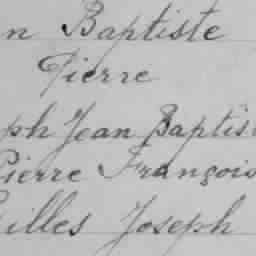 n Baptiste
Pierre
ph Jean Baptis
Pierre François
illes Joseph